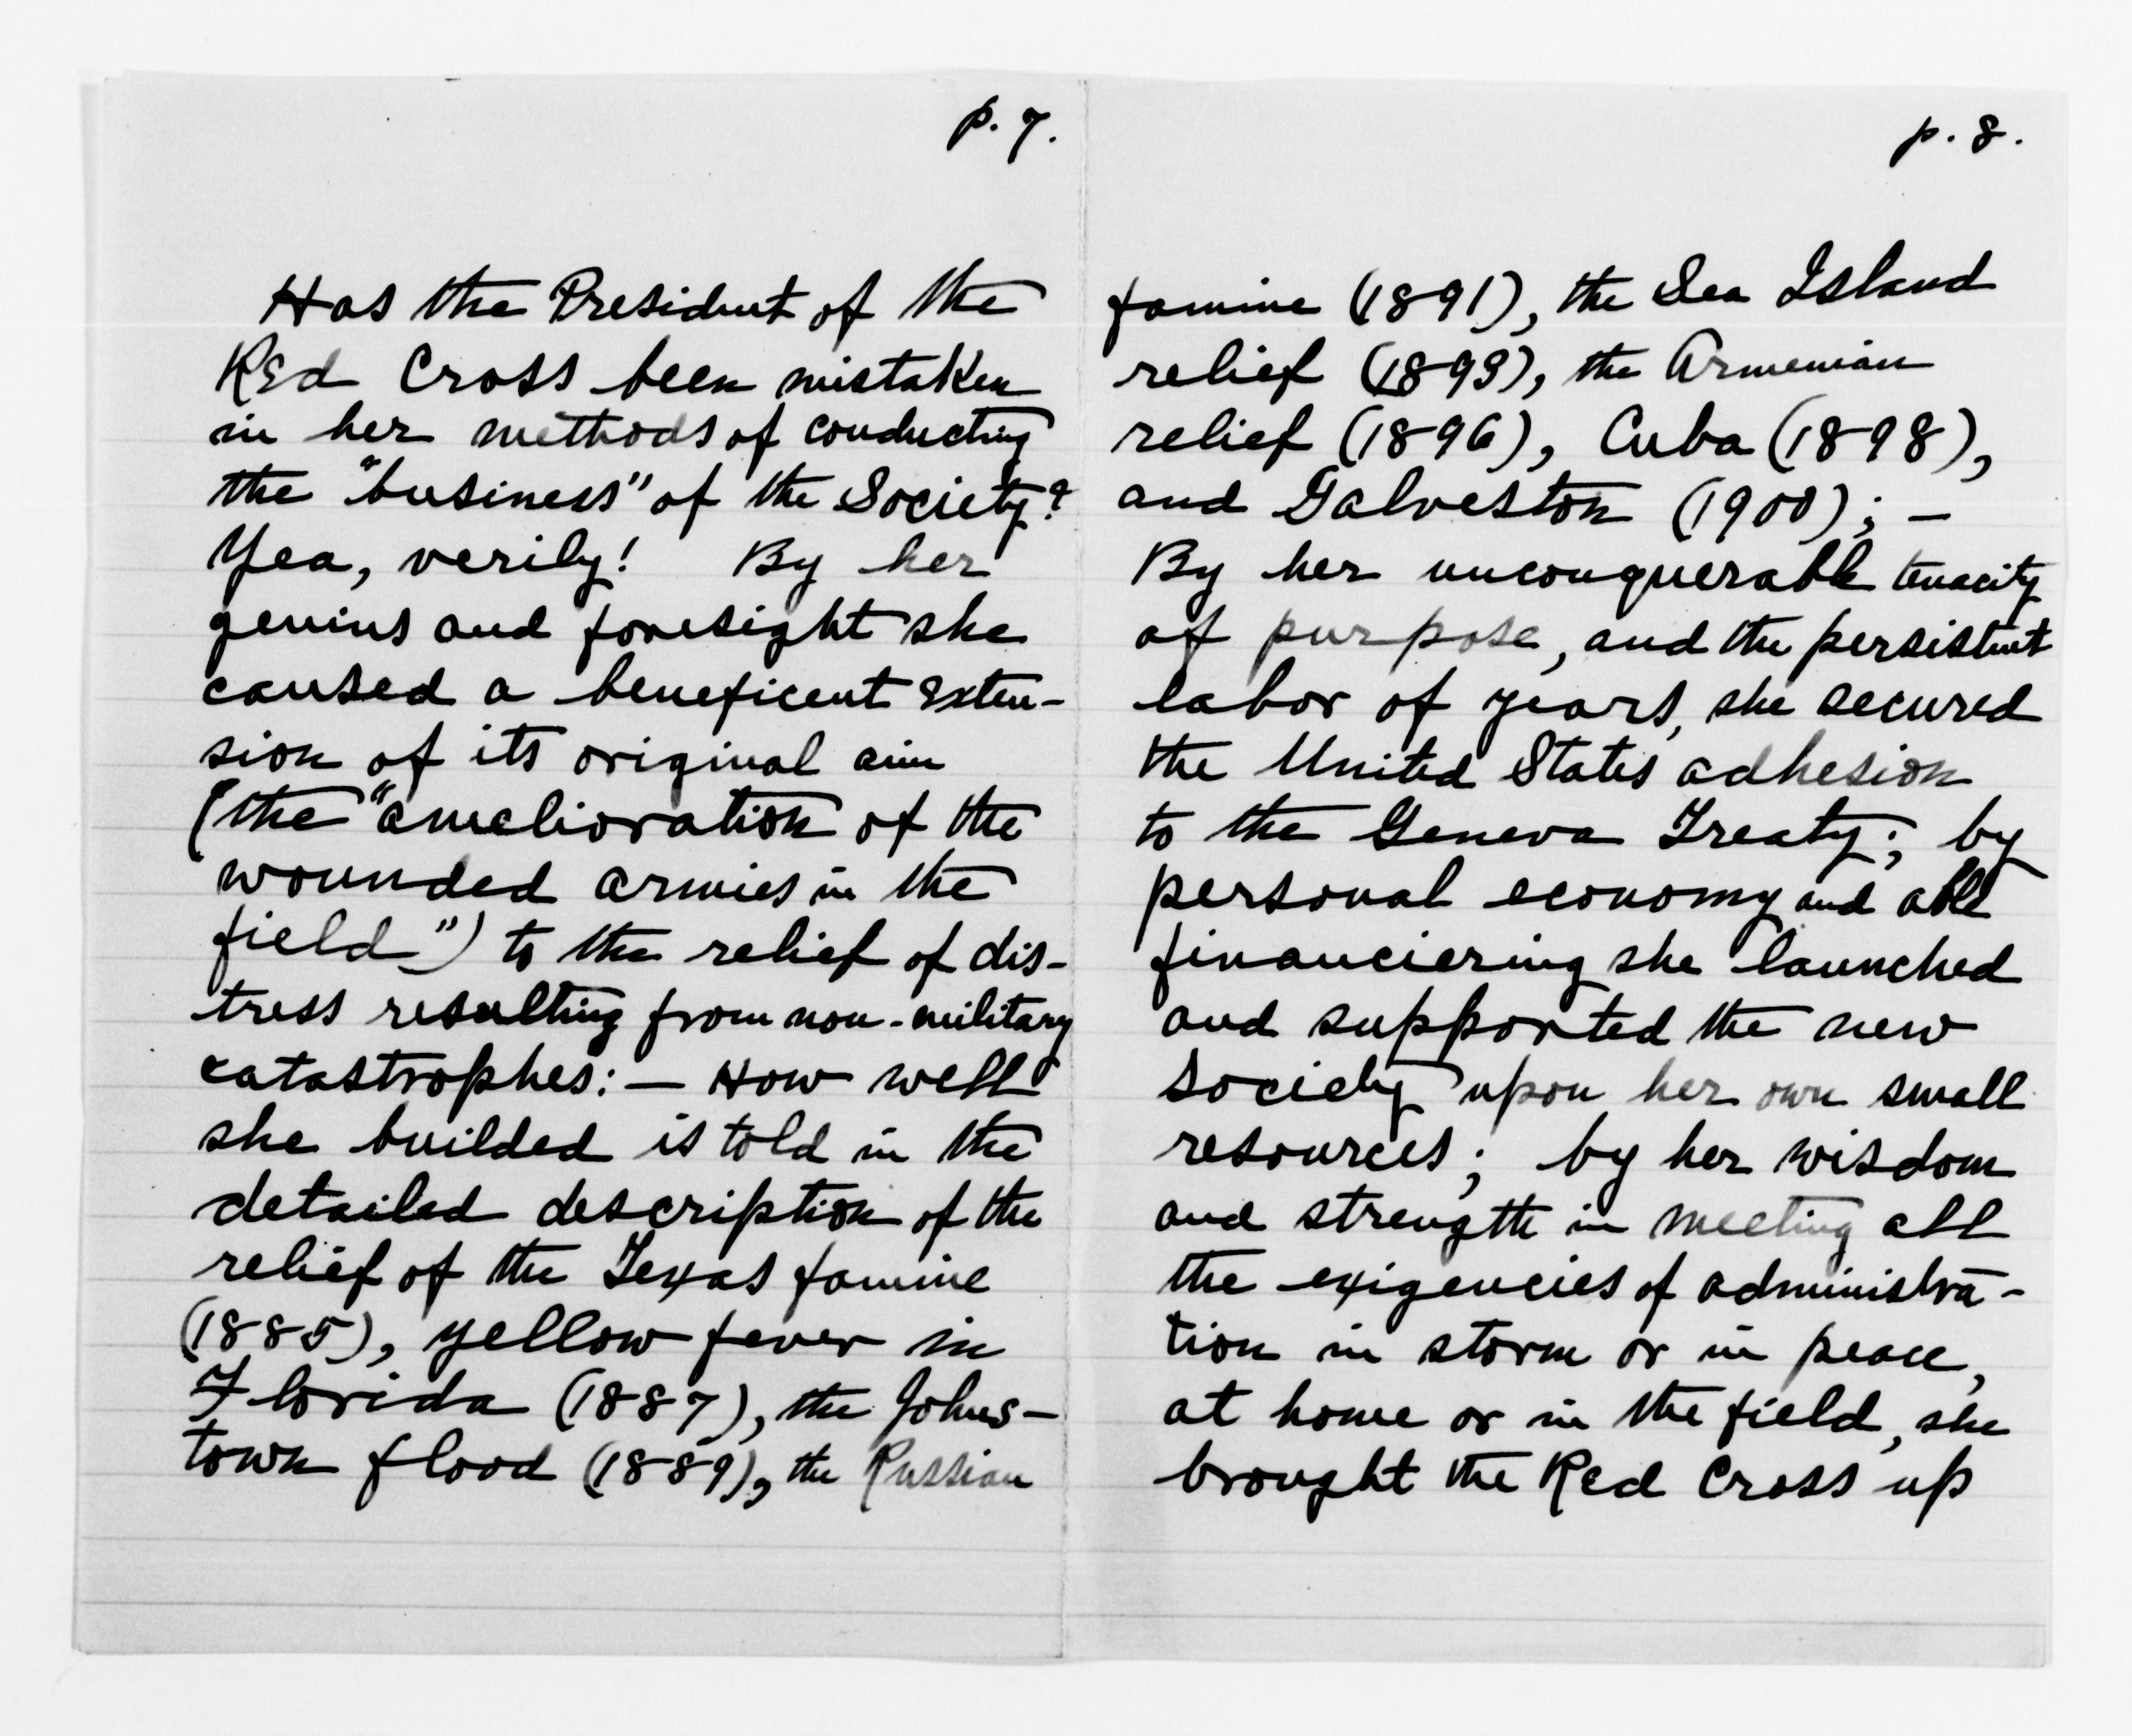 p. 7.
Has the President of the
Red Cross been mistaken
in her methods of conducting
the "business" of the Society?
Yea, verily! By her
genius and foresight she
caused a beneficent exten-
sion of its original aim
(the "amelioration of the
wounded armies in the
field") to the relief of dis-
tress resulting from non-military
catastrophes: — How well
she builded is told in the
detailed description of the
relief of the Texas famine
(1885), yellow fever in
Florida (1887), the Johns-
town flood (1889), the Russian
p. 8.
famine (1891), the Sea Island
relief (1893), the Armenian
relief (1896), Cuba (1898),
and Galveston (1900); —
By her unconquerable tenacity
of purpose, and the persistent
labor of years, she secured
the United States adhesion
to the Geneva Treaty; by
personal economy and able
financiering she launched
and supported the new
Society upon her own small
resources; by her wisdom
and strength in meeting all
the exigencies of administra-
tion in storm or in peace,
at home or in the field, she
brought the Red Cross up